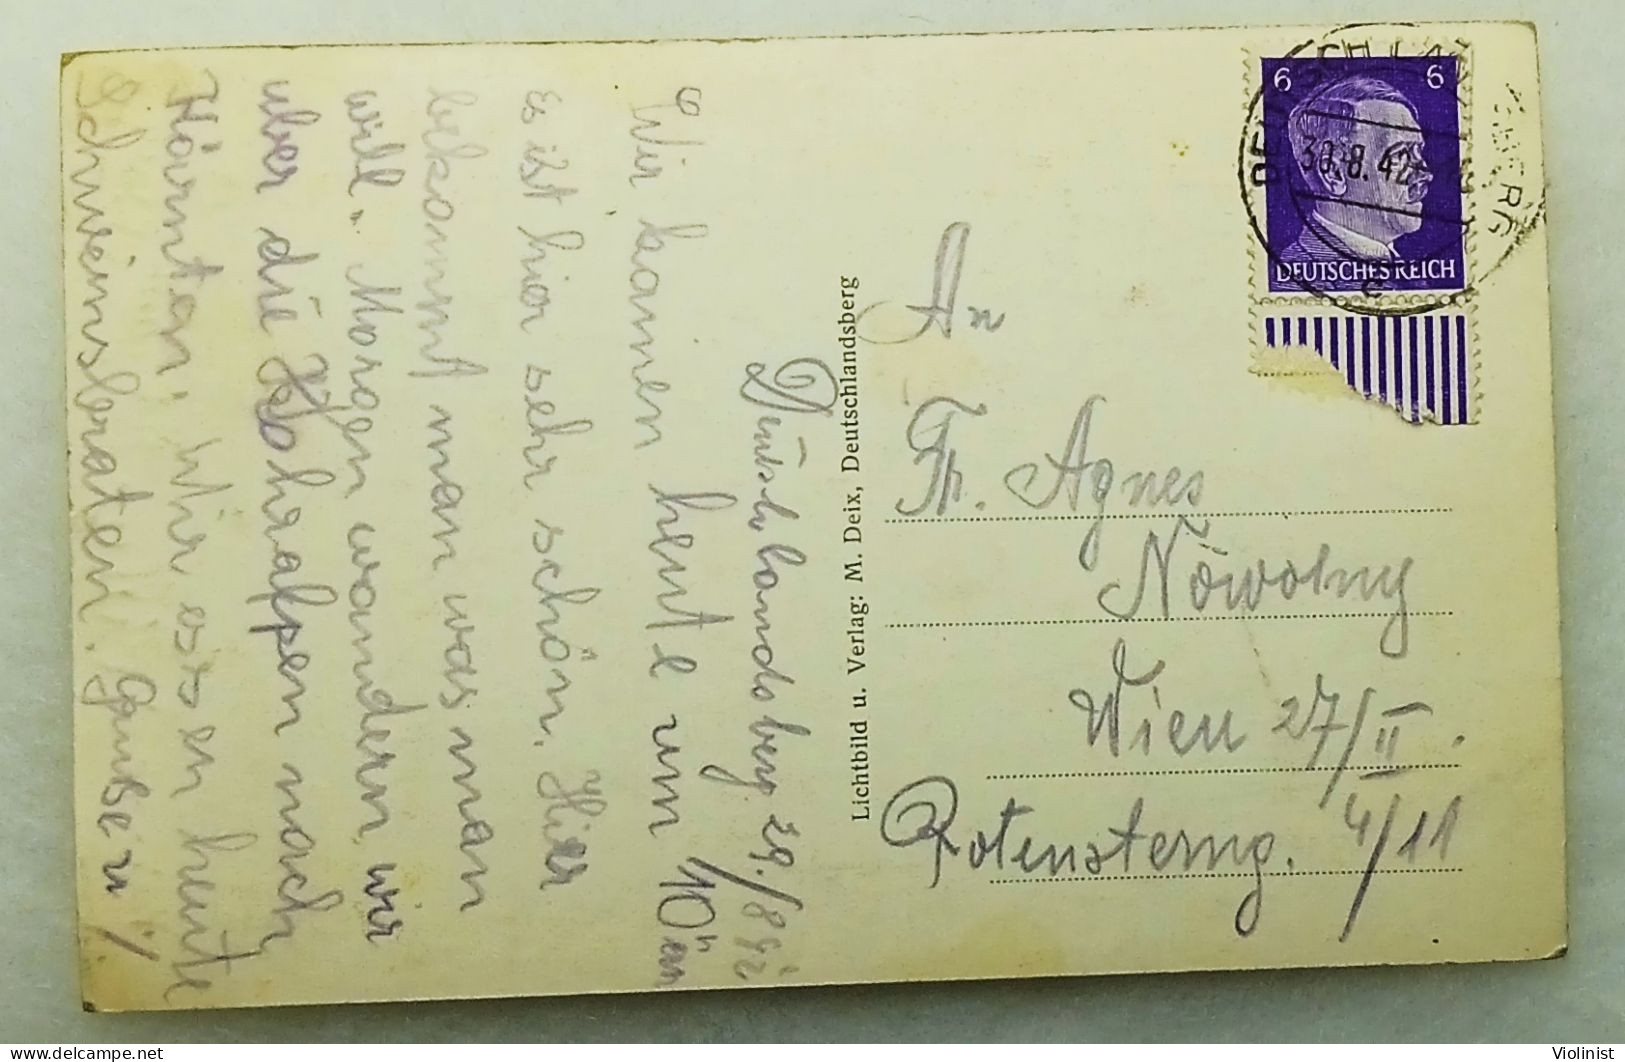 Deutschlandsberg 29./8 42
Wir kamen heute um 10h an
es ist hier sehr schön. Hier
bekommt man was man
will. Morgen wandern wir
über die Koralpen nach
Kärnten. Wir assen heute
Schweinsbraten.
Lichtbild u. Verlag: M. Deix, Deutschlandsberg
6 6
DEUTSCHES REICH
30.-8. 42
c
An
Fr. Agnes
Nowotny
Wien 27/II.
Rotensterng. 4/11
Violinist